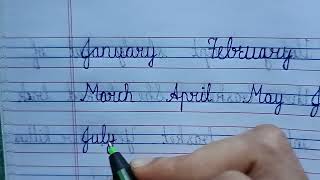 January February
March April May
July